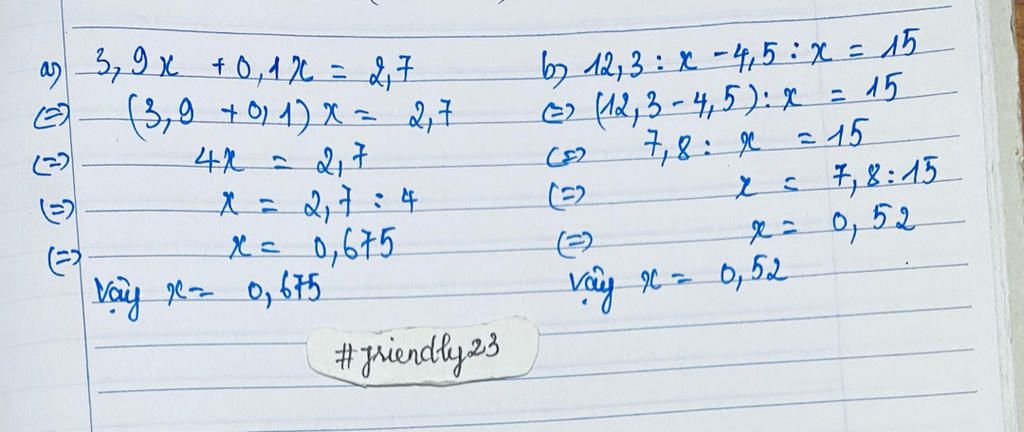 a) 3,9x + 0,1x = 2,7
(=) (3,9 + 0,1) x = 2,7
(=) 4x = 2,7
(=) x = 2,7 : 4
(=) x = 0,675
Vậy x = 0,675
b) 12,3 : x - 4,5 : x = 15
(=) (12,3 - 4,5) : x = 15
(=) 7,8 : x = 15
(=) x = 7,8 : 15
(=) x = 0,52
Vậy x = 0,52
#friendly23